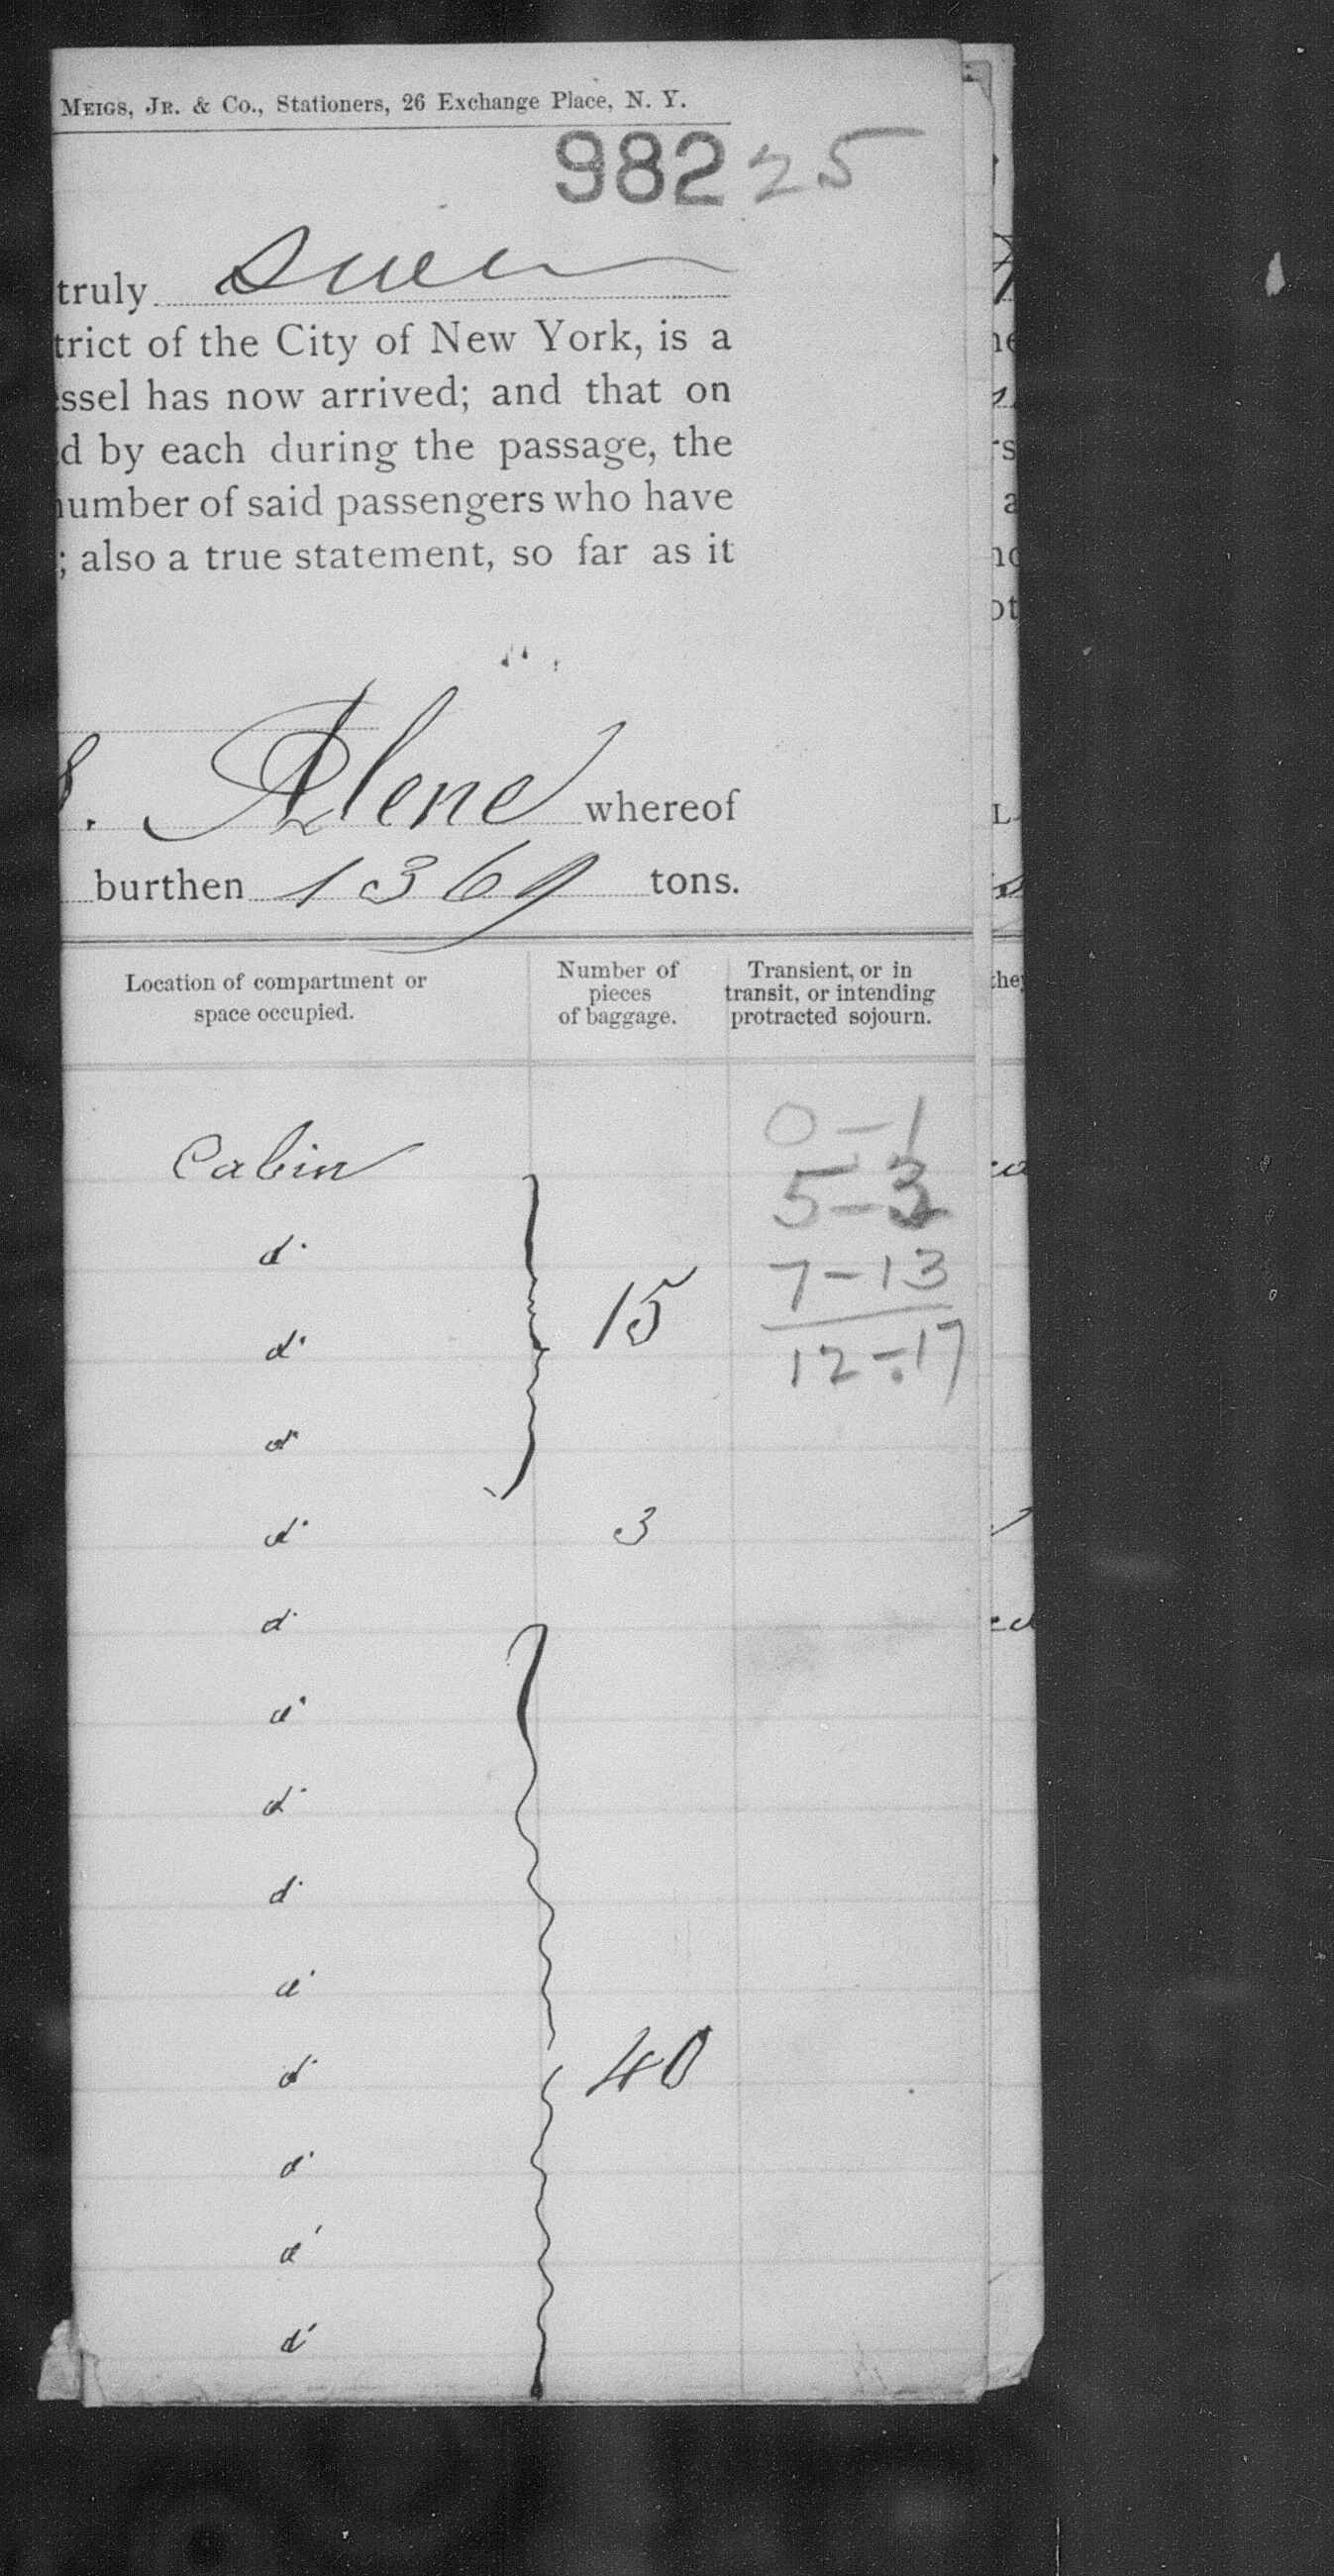 MEIGS, JR. & CO., Stationers, 26 Exchange Place, N. Y.
982 25
truly
trict of the City of New York, is a
ssel has now arrived; and that on
d by each during the passage, the
number of said passengers who have
; also a true statement, so far as it
S. Alene whereof
burthen 1369 tons.
Location of compartment or space occupied.
Number of pieces of baggage.
Transient, or in transit, or intending protracted sojourn.
Cabin
d°
d°
d°
d°
d°
d°
d°
d°
d°
d°
d°
d°
d°
15
3
40
0-1
5-3
7-13
12-17